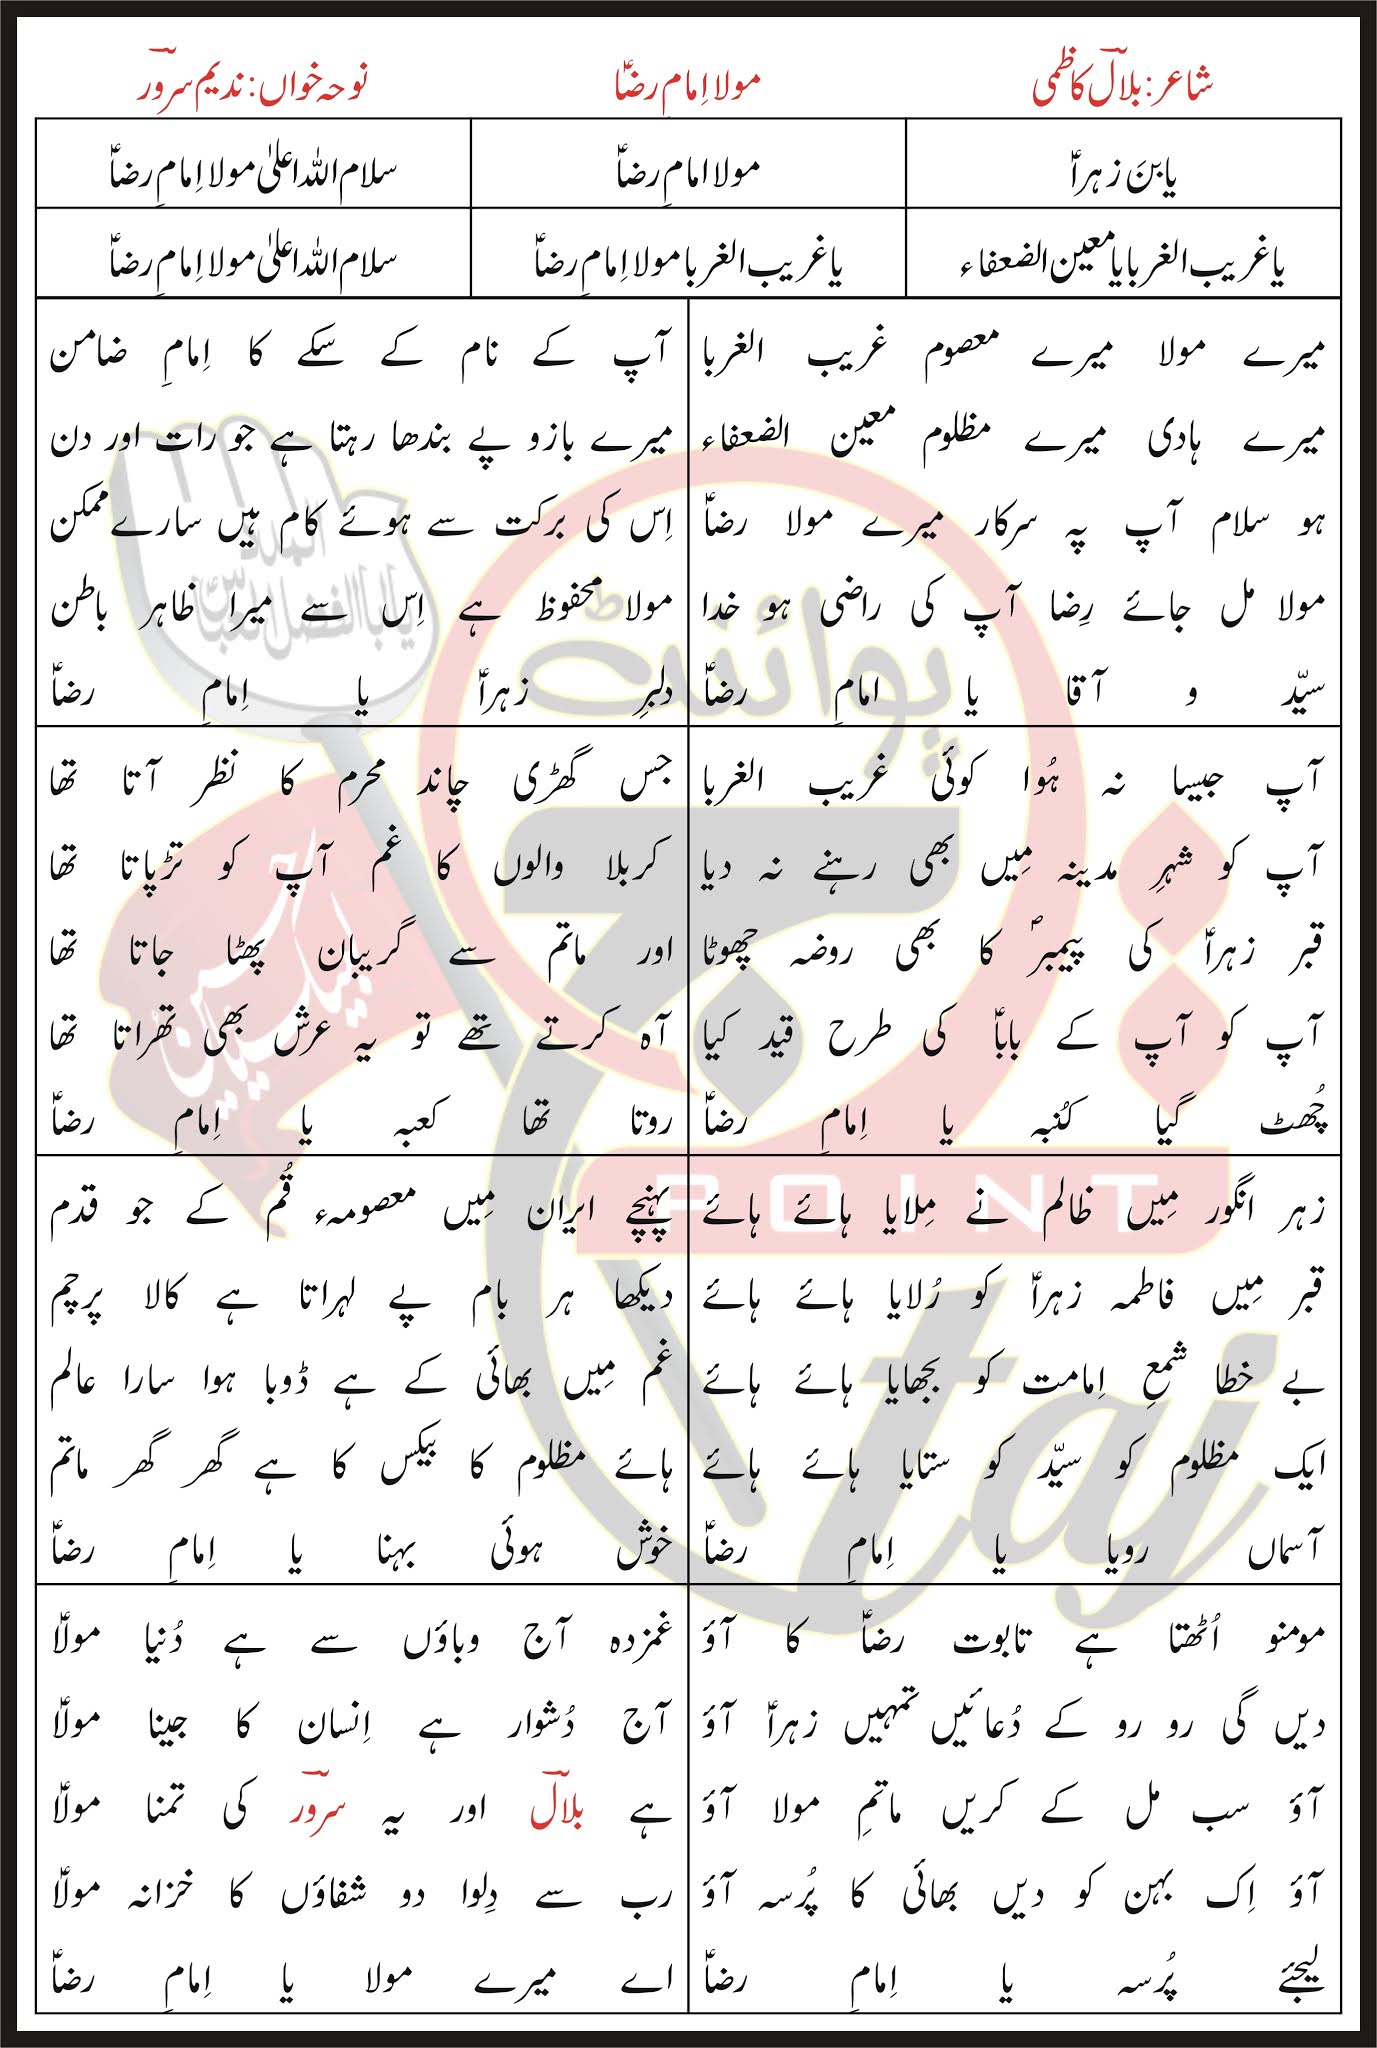 شاعر: بلالؔ کاظمی
مولا اِمامِ رضاؑ
نوحہ خواں: ندیم سرورؔ
یابنَ زہراؑ
مولا امامِ رضاؑ
سلام اللہ اعلیٰ مولا اِمامِ رضاؑ
یا غریب الغربا یا معین الضعفاء
یا غریب الغربا مولا اِمامِ رضاؑ
سلام اللہ اعلیٰ مولا اِمامِ رضاؑ
میرے مولا میرے معصوم غریب الغربا
میرے ہادی میرے مظلوم معین الضعفاء
ہو سلام آپ پہ سرکار میرے مولا رضاؑ
مولا مل جائے رِضا آپ کی راضی ہو خدا
سیّد و آقا یا امامِ رضاؑ
آپ کے نام کے سکے کا اِمامِ ضامن
میرے بازو پے بندھا رہتا ہے جو رات اور دن
اِس کی برکت سے ہوئے کام ہیں سارے ممکن
مولا محفوظ ہے اِس سے میرا ظاہر باطن
دلبرِ زہراؑ یا اِمامِ رضاؑ
آپ جیسا نہ ہُوا کوئی غریب الغربا
آپ کو شہرِ مدینہ مِیں بھی رہنے نہ دیا
قبر زہراؑ کی پیمبرؐ کا بھی روضہ چھوٹا
آپ کو آپ کے باباؑ کی طرح قید کیا
چُھٹ گیا کُنبہ یا اِمامِ رضاؑ
جس گھڑی چاند محرم کا نظر آتا تھا
کربلا والوں کا غم آپ کو تڑپاتا تھا
اور ماتم سے گریبان پھٹا جاتا تھا
آہ کرتے تھے تو یہ عرش بھی تھراتا تھا
روتا تھا کعبہ یا اِمامِ رضاؑ
زہر انگور مِیں ظالم نے مِلایا ہائے ہائے
قبر مِیں فاطمہ زہراؑ کو رُلایا ہائے ہائے
بے خطا شمعِ اِمامت کو بجھایا ہائے ہائے
ایک مظلوم کو سیّد کو ستایا ہائے ہائے
آسماں رویا یا اِمامِ رضاؑ
پہنچے ایران مِیں معصومہء قُم کے جو قدم
دیکھا ہر بام پے لہراتا ہے کالا پرچم
غم مِیں بھائی کے ہے ڈوبا ہوا سارا عالم
ہائے مظلوم کا بیکس کا ہے گھر گھر ماتم
خوش ہوئی بہنا یا اِمامِ رضاؑ
مومنو اُٹھتا ہے تابوت رضاؑ کا آؤ
دیں گی رو رو کے دُعائیں تمہیں زہراؑ آؤ
آؤ سب مل کے کریں ماتمِ مولا آؤ
آؤ اِک بہن کو دیں بھائی کا پُرسہ آؤ
لیجئے پُرسہ یا اِمامِ رضاؑ
غمزدہ آج وباؤں سے ہے دُنیا مولاؑ
آج دُشوار ہے اِنسان کا جینا مولاؑ
ہے بلالؔ اور یہ سرورؔ کی تمنا مولاؑ
رب سے دِلوا دو شفاؤں کا خزانہ مولاؑ
اے میرے مولا یا اِمامِ رضاؑ
پوائنٹ
POINT
taj